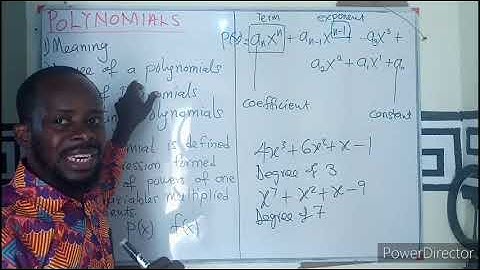 POLYNOMIALS
1) Meaning
of a polynomials
of
nomials
Polynomials
mial is defined
ression formed
of powers of one
variables multiplied
ents.
P(x) f(x)
Term exponent
P(x) = aₙxⁿ + aₙ₋₁x⁽ⁿ⁻¹⁾ - a₃x³ +
a₂x² + a₁x¹ + a₀
coefficient
constant
4x³ + 6x² + x - 1
Degree of 3
x⁷ + x² + x - 9
Degree of 7
PowerDirector